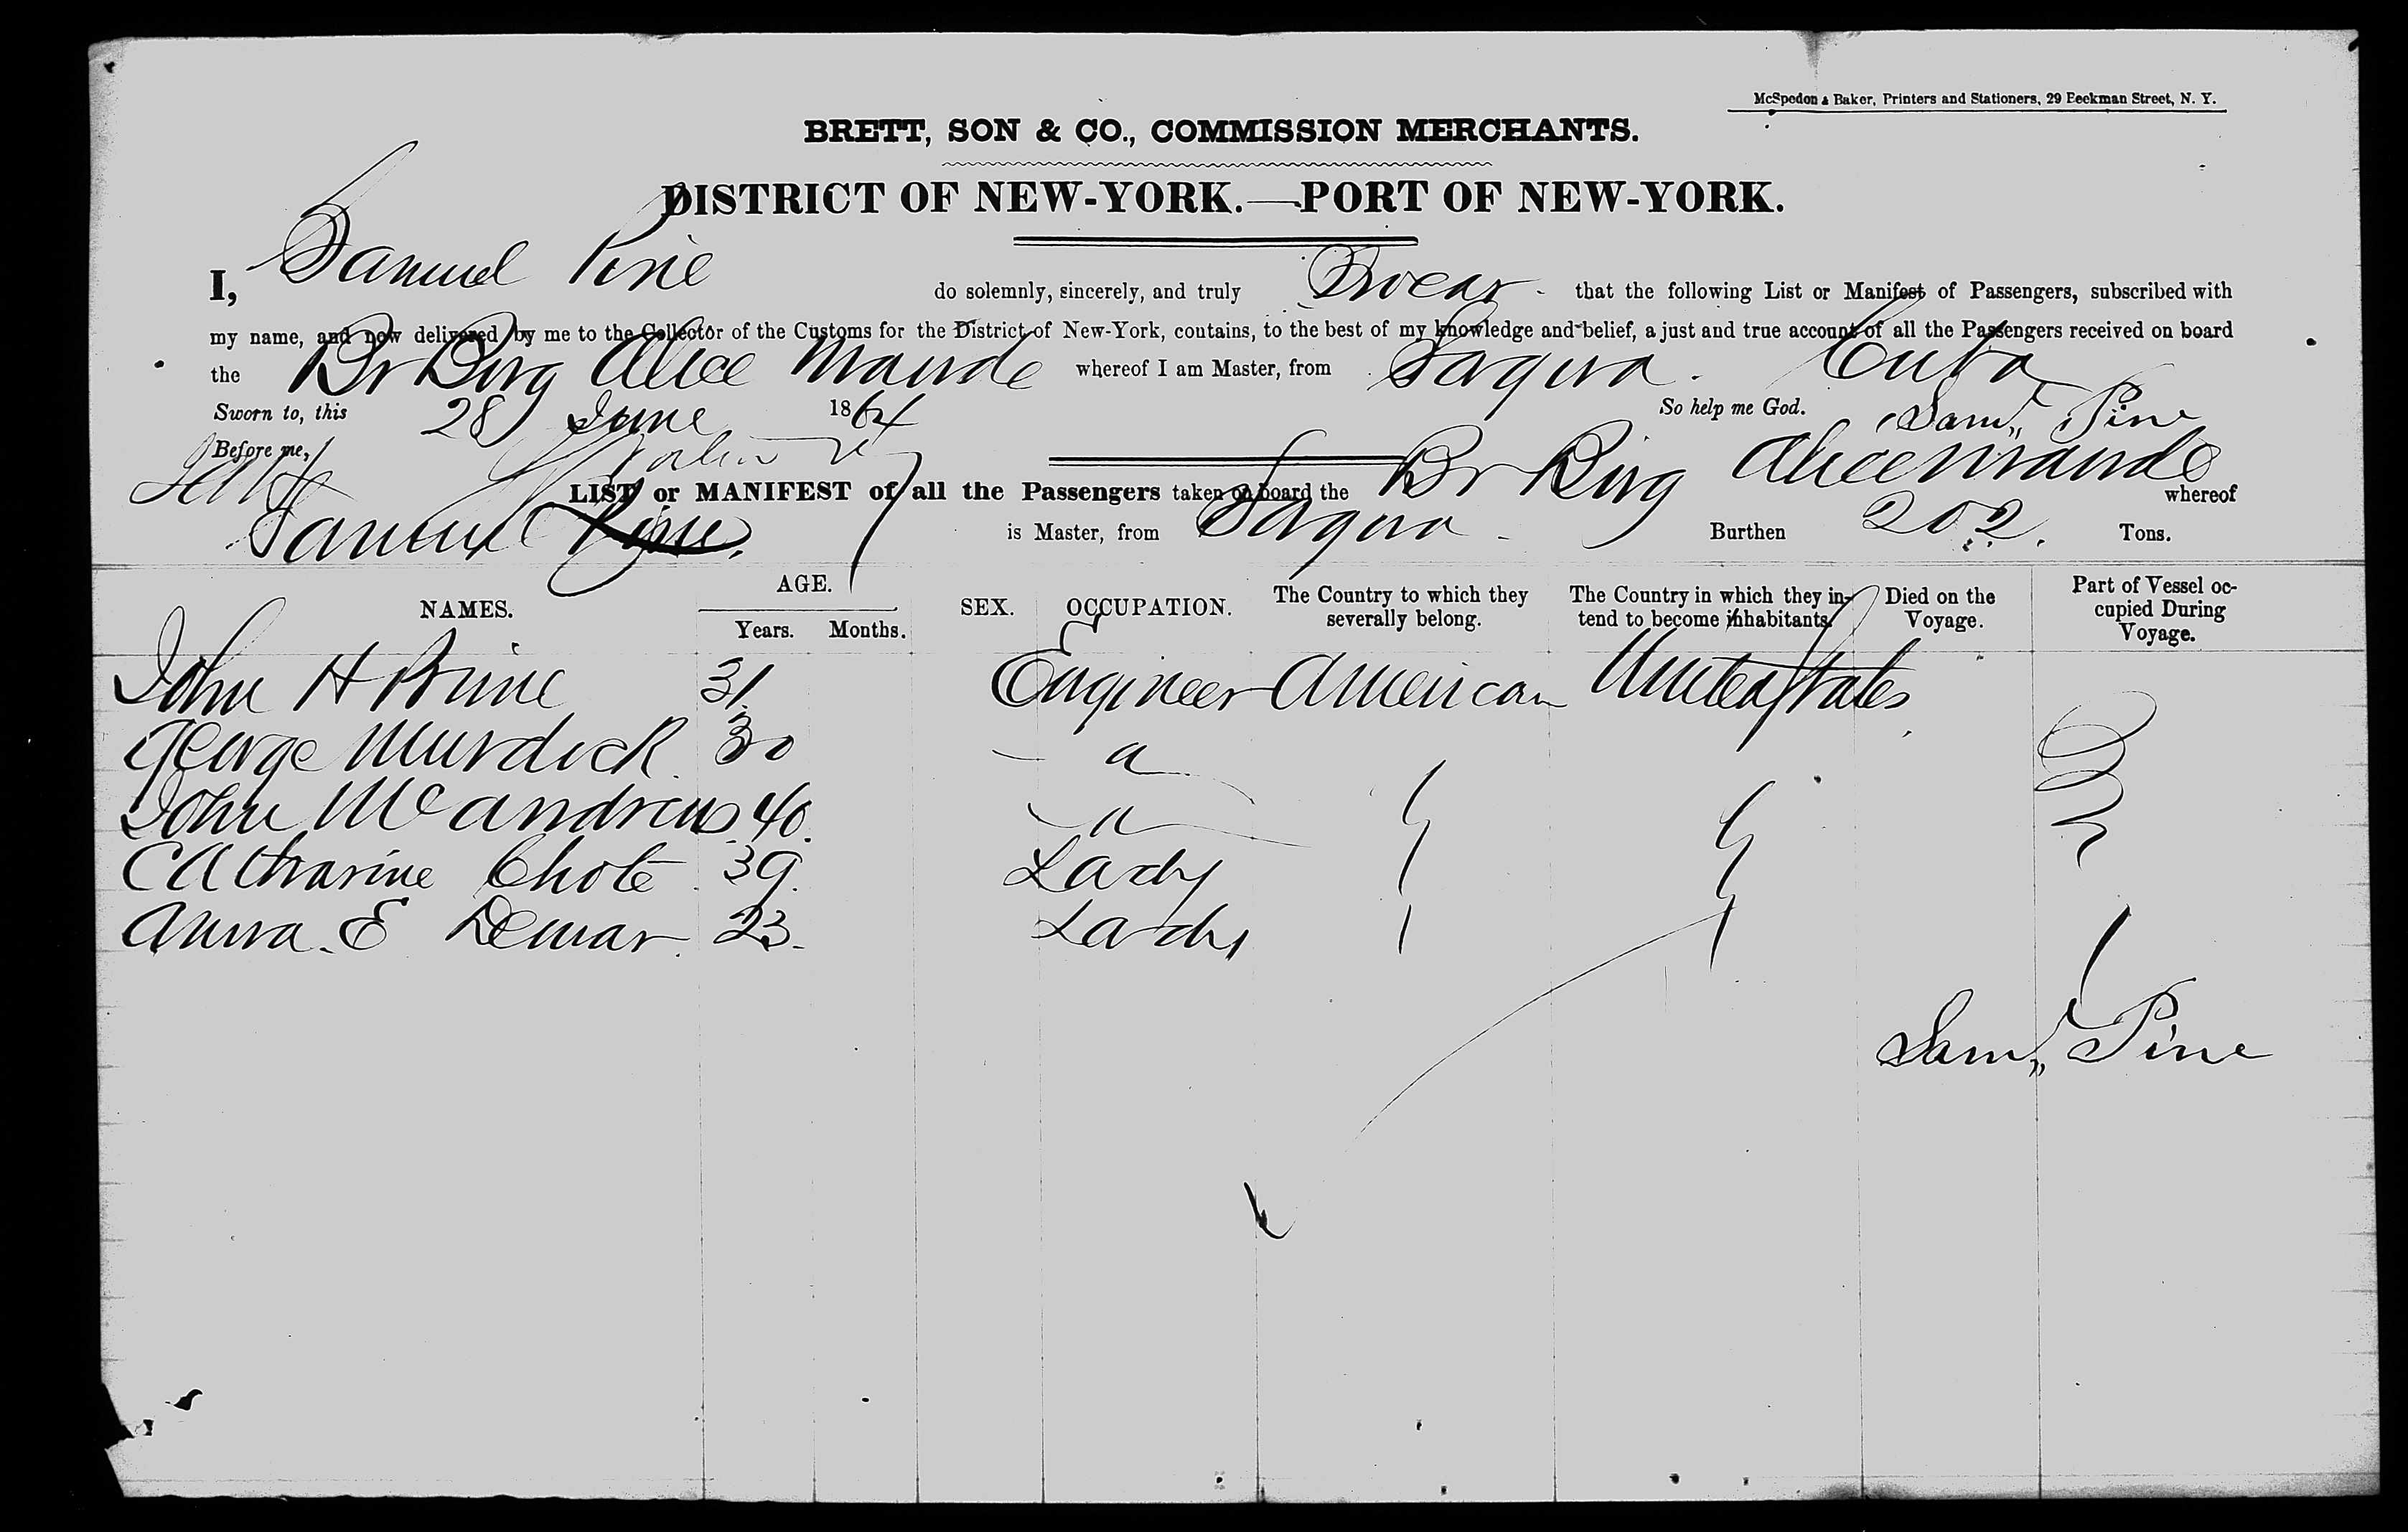 McSpedon & Baker, Printers and Stationers, 29 Beekman Street, N. Y.
BRETT, SON & CO., COMMISSION MERCHANTS.
DISTRICT OF NEW-YORK.—PORT OF NEW-YORK.
I, Samuel Pine do solemnly, sincerely, and truly Swear that the following List or Manifest of Passengers, subscribed with
my name, and now delivered by me to the Collector of the Customs for the District of New-York, contains, to the best of my knowledge and belief, a just and true account of all the Passengers received on board
the Br Brig Alice Maude whereof I am Master, from Sagua. Cuba
Sworn to, this 28 June 1864 So help me God. Saml Pine
Before me,
LIST or MANIFEST of all the Passengers taken on board the Br Brig Alice Maude whereof
Samuel Pine is Master, from Sagua Burthen 202. Tons.
NAMES. AGE. Years. Months. SEX. OCCUPATION. The Country to which they severally belong. The Country in which they intend to become inhabitants. Died on the Voyage. Part of Vessel occupied During Voyage.
John H 31 Engineer American United States
George Murdock 30 a
John McAndrews 40. a
Catharine Chote 39. Lady
Anna. E Demar. 23. Lady
Saml Pine